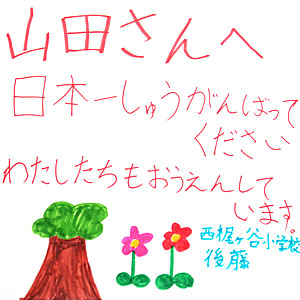 山田さんへ
日本一しゅうがんばって
ください
わたしたちもおうえんして
います。
西梶ヶ谷小学校
後藤